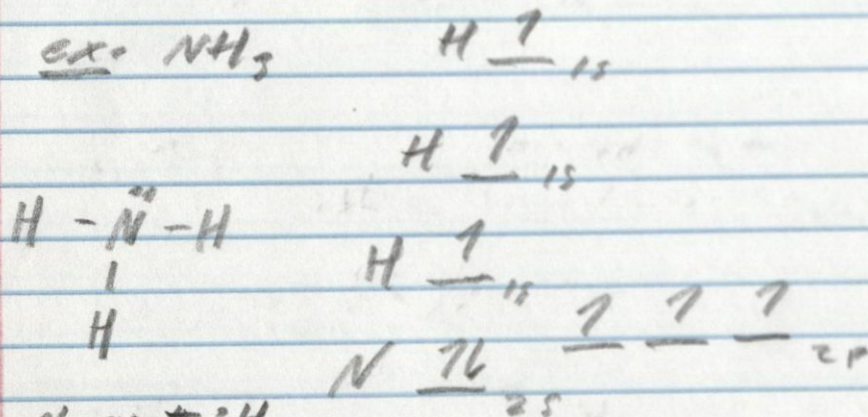 ex. NH3
H 1 1s
H 1 1s
H - N̈ - H
|
H
H 1 1s
1 1 1 2p
N 1L 2s